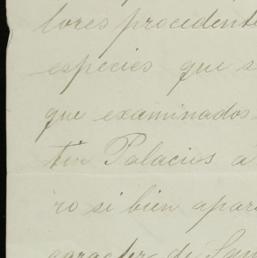 lores procedente
especies que s
que examinados
tin Palacios a
ro si bien apar
caracter de San